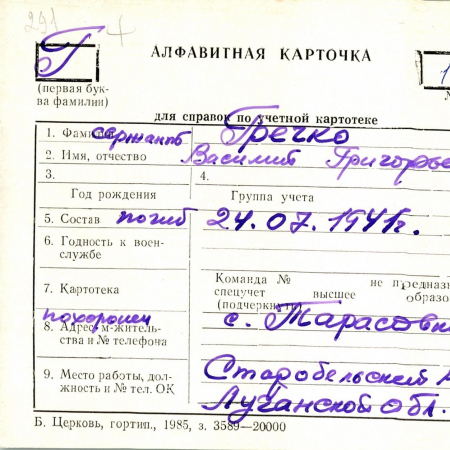 291
Г
АЛФАВИТНАЯ КАРТОЧКА
1
(первая бук-
ва фамилии)
для справок по учетной картотеке
1. Фамилия сержант Гречко
2. Имя, отчество Василий Григорье
3. 4.
Год рождения Группа учета
5. Состав погиб 24.07.1941г.
6. Годность к воен-
службе
7. Картотека
Команда № не предназ
спецучет высшее образо
(подчеркнуть)
похоронен с. Тарасовк
8. Адрес м-житель-
ства и № телефона
9. Место работы, дол-
жность и № тел. ОК
Старобельский
Луганской обл.
Б. Церковь, гортип., 1985, з. 3589—20000